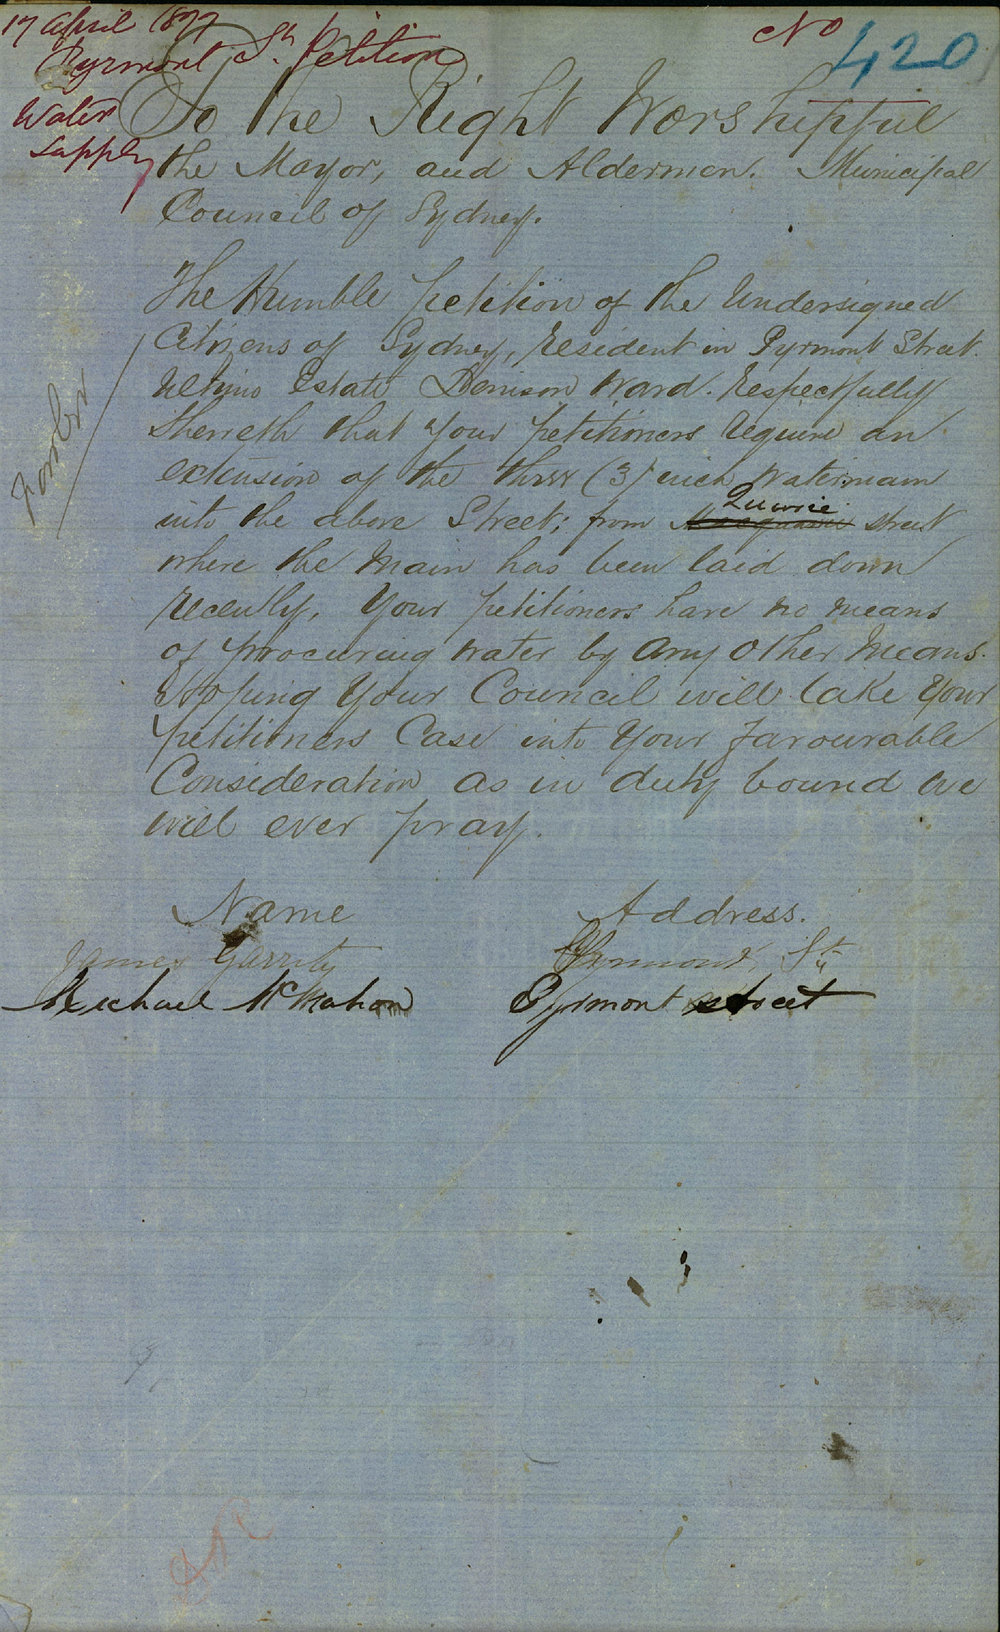 17 April 1877
Pyrmont St. Petition
Water
Supply
No 420
To the Right Worshipful
the Mayor, and Aldermen. Municipal
Council of Sydney.
The Humble petition of the Undersigned
Citizens of Sydney, resident in Pyrmont Street.
Ultimo Estate Denison Ward. Respectfully
Sheweth that your petitioners require an
extension of the three (3) inch Watermain
into the above Street; from Macquarie Quarrie street
where the Main has been laid down
recently. Your petitioners have no means
of procuring water by any other Means.
Hopping Your Council will take Your
petitioners Case into Your favourable
Consideration as in duty bound we
will ever pray.
Name Address.
James Garrity Pyrmont St
Michael McMahon Pyrmont street